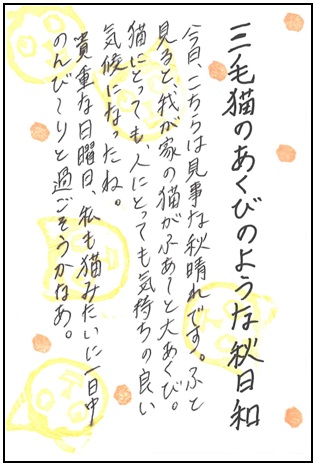 三毛猫のあくびのような秋日和
今日、こちらは見事な秋晴れです。ふと
見ると、我が家の猫がふあ～と大あくび。
猫にとっても、人にとっても気持ちの良い
気候になったね。
貴重な日曜日、私も猫みたいに一日中
のんび～りと過ごそうかなあ。